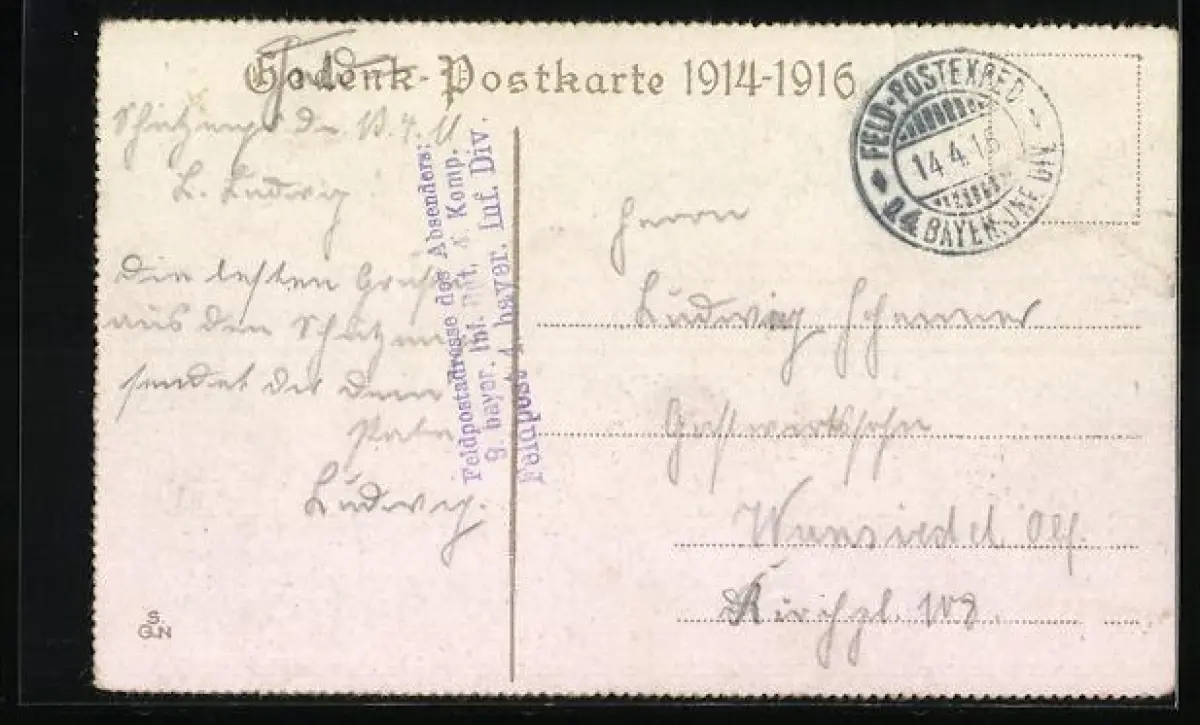 Gedenk-Postkarte 1914-1916
FELD-POSTEXPED
14.4.16
D. 4. BAYER. INF. DIV.
L. Ludwig
Die besten Grüße
aus dem Schützen
sendet dir dein
Pate
Ludwig.
Feldpostadresse des Absenders:
9. bayer. Inf. Rgt, Komp.
Feldpost 4. bayer. Inf. Div.
Herrn
Ludwig
Gastwirtssohn
Wunsiedel Ofr.
Kirchpl. 108.
S.
G.N